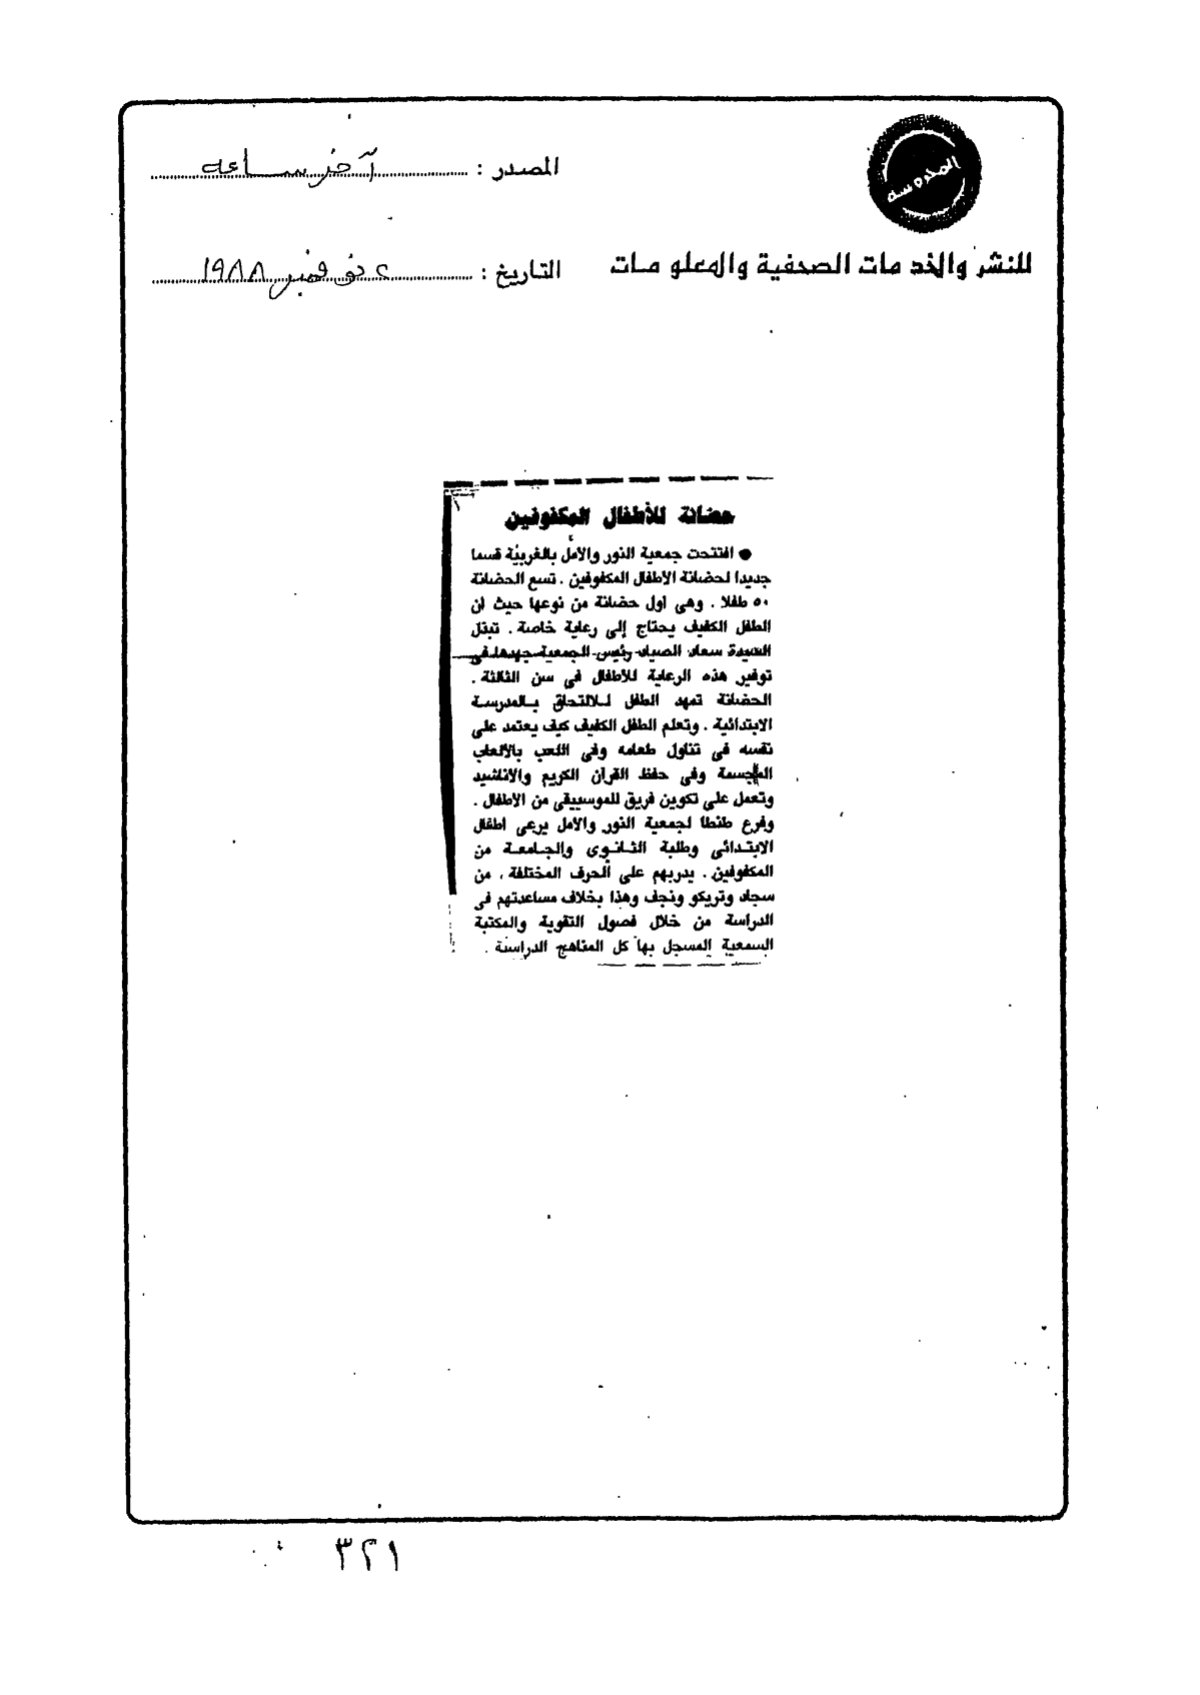 المحروسة
المصدر : آخر ساعه
للنشر والخدمات الصحفية والمعلومات
التاريخ : ٢ نوفمبر ١٩٨٨
حضانة للأطفال المكفوفين
● افتتحت جمعية النور والأمل بالغربية قسما
جديدا لحضانة الأطفال المكفوفين . تسع الحضانة
٥٠ طفلا . وهى اول حضانة من نوعها حيث ان
الطفل الكفيف يحتاج إلى رعاية خاصة . تبذل
السيدة سعاد الصياد رئيس الجمعية جهدها فى
توفير هذه الرعاية للأطفال فى سن الثالثة .
الحضانة تمهد الطفل للالتحاق بالمدرسة
الابتدائية . وتعلم الطفل الكفيف كيف يعتمد على
نفسه فى تناول طعامه وفى اللعب بالألعاب
المجسمة وفى حفظ القرآن الكريم والاناشيد
وتعمل على تكوين فريق للموسيقى من الاطفال .
وفرع طنطا لجمعية النور والأمل يرعى اطفال
الابتدائى وطلبة الثانوى والجامعة من
المكفوفين . يدربهم على الحرف المختلفة ، من
سجاد وتريكو ونجف وهذا بخلاف مساعدتهم فى
الدراسة من خلال فصول التقوية والمكتبة
السمعية المسجل بها كل المناهج الدراسية .
٣٢١